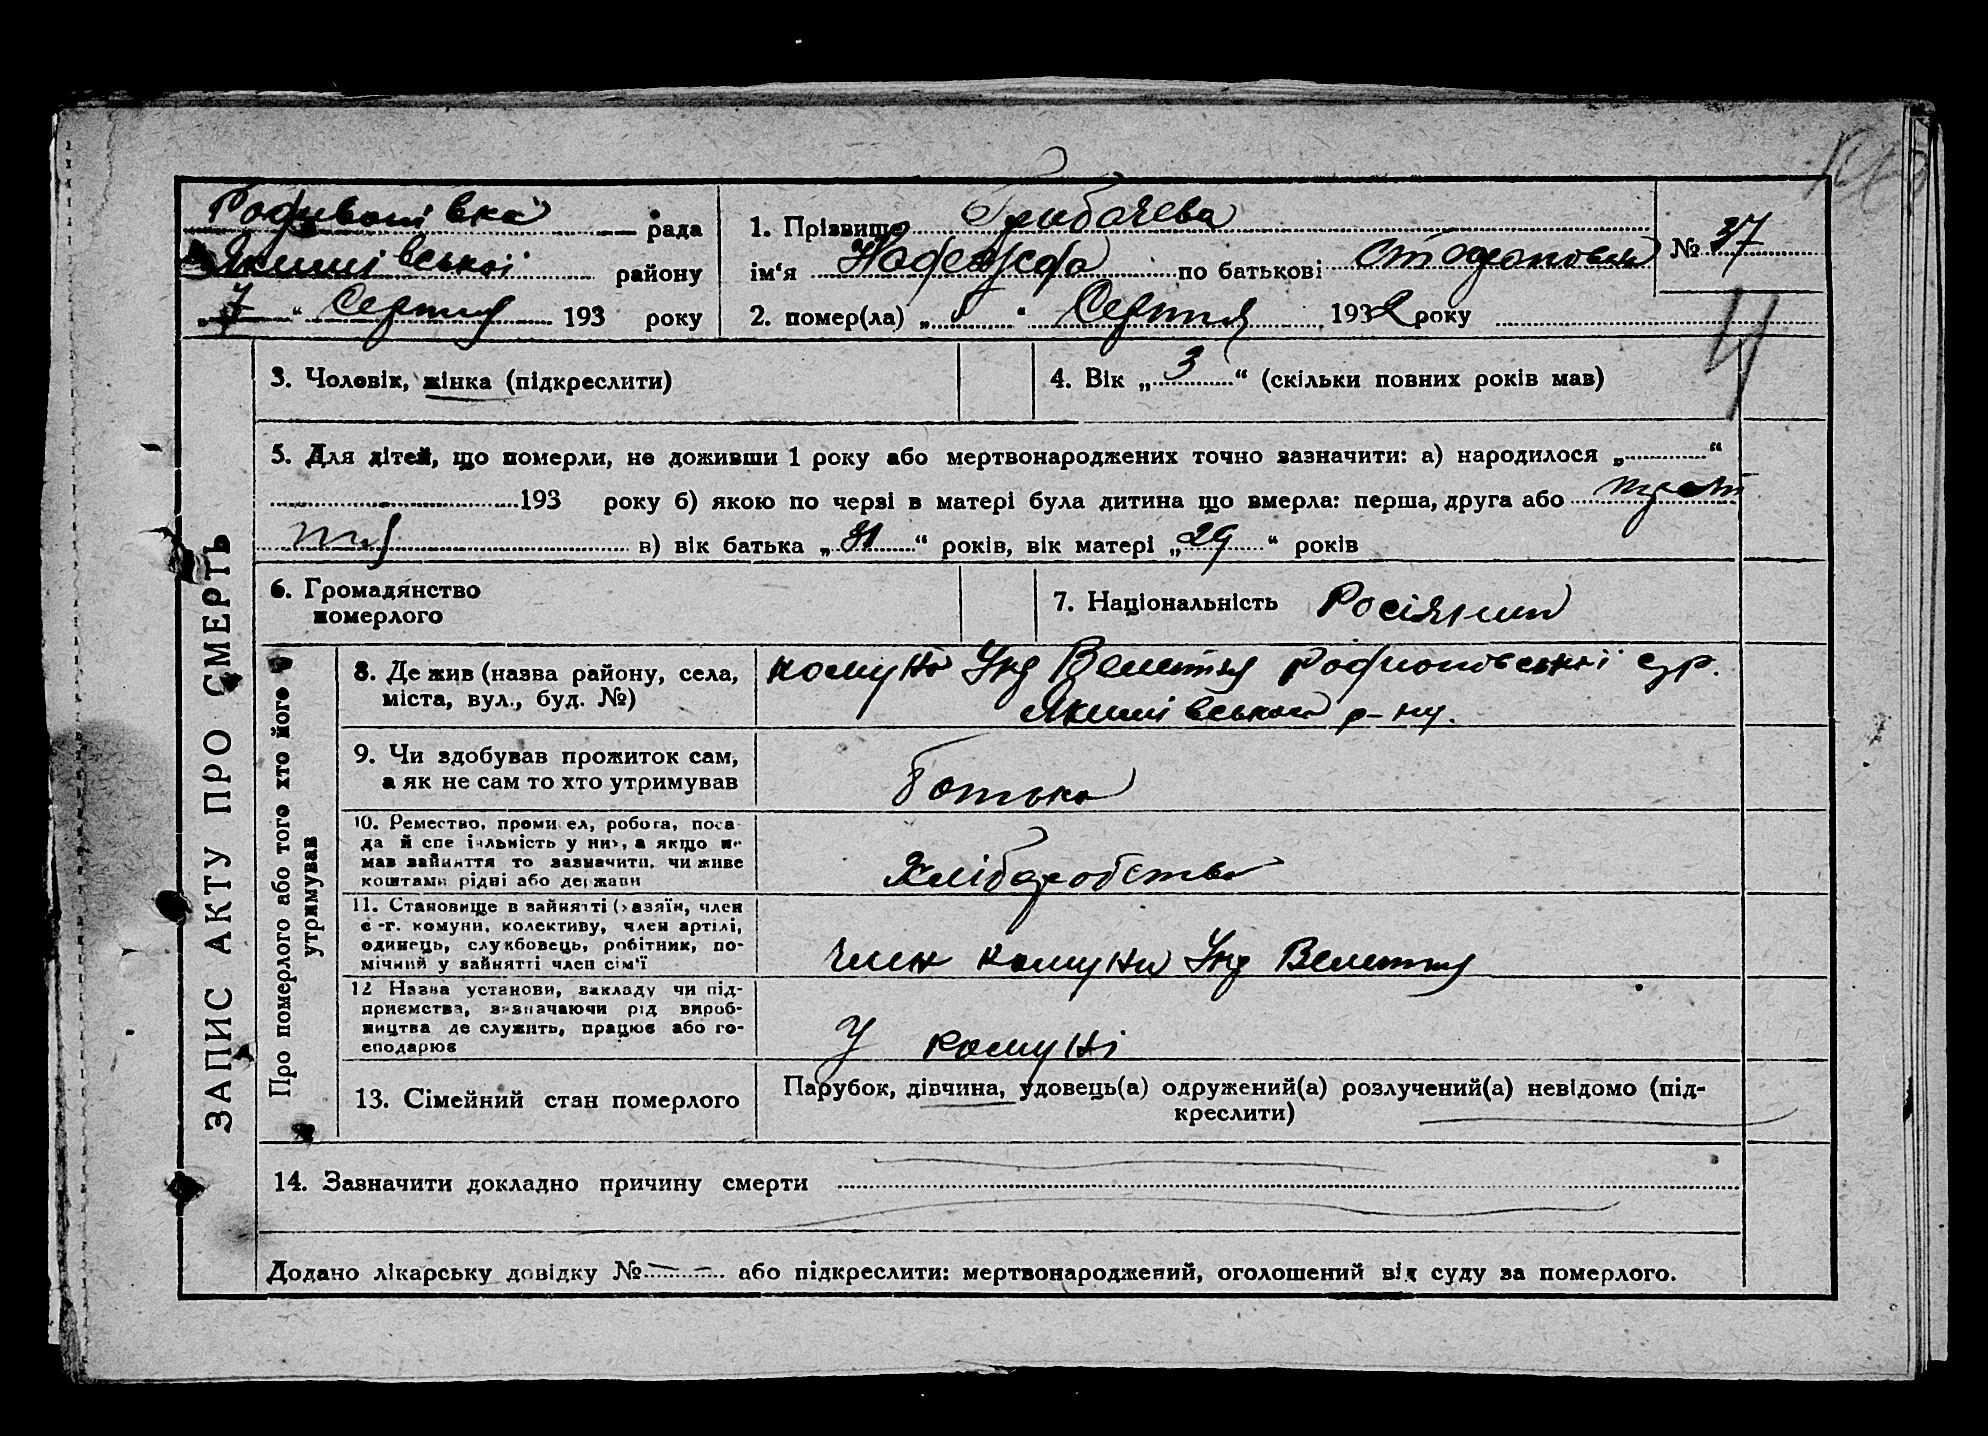 Родивонівка рада
Якимівської району
„ 7 “ Серпня 193 року
1. Прізвище Грибачева
ім‘я Надежда по батькові
№ 37
2. помер(ла) „ “ Серпня 1932 року
ЗАПИС АКТУ ПРО СМЕРТЬ
3. Чоловік, жінка (підкреслити)
4. Вік „ 3 “ (скільки повних років мав)
5. Для дітей, що померли, не доживши 1 року або мертвонароджених точно зазначити: а) народилося „ “
193 року б) якою по черзі в матері була дитина що вмерла: перша, друга або
в) вік батька „ 31 “ років, вік матері „ 29 “ років
6. Громадянство
померлого
7. Національність Росіянин
Про померлого або того хто його
утримував
8. Де жив (назва району, села,
міста, вул., буд. №)
комуна Інд Велетня Родионовської с/р.
Якимівського р-ну.
9. Чи здобував прожиток сам,
а як не сам то хто утримував
Батько
10. Ремество, промисел, робота, поса-
да й спеціяльність у них, а якщо не
мав зайняття то зазначити, чи живе
коштами рідні або держави
Хліборобство
11. Становище в зайнятті (хазяїн, член
с.-г. комуни, колективу, член артілі,
одинець, службовець, робітник, по-
мічний у зайнятті член сім'ї
член комуни Інд Велетня
12 Назва установи, закладу чи під-
приємства, зазначаючи рід вироб-
ництва де служить, працює або го-
сподарює
У комуні
13. Сімейний стан померлого
Парубок, дівчина, удовець(а) одружений(а) розлучений(а) невідомо (під-
креслити)
14. Зазначити докладно причину смерти
Додано лікарську довідку № — — або підкреслити: мертвонароджений, оголошений від суду за померлого.